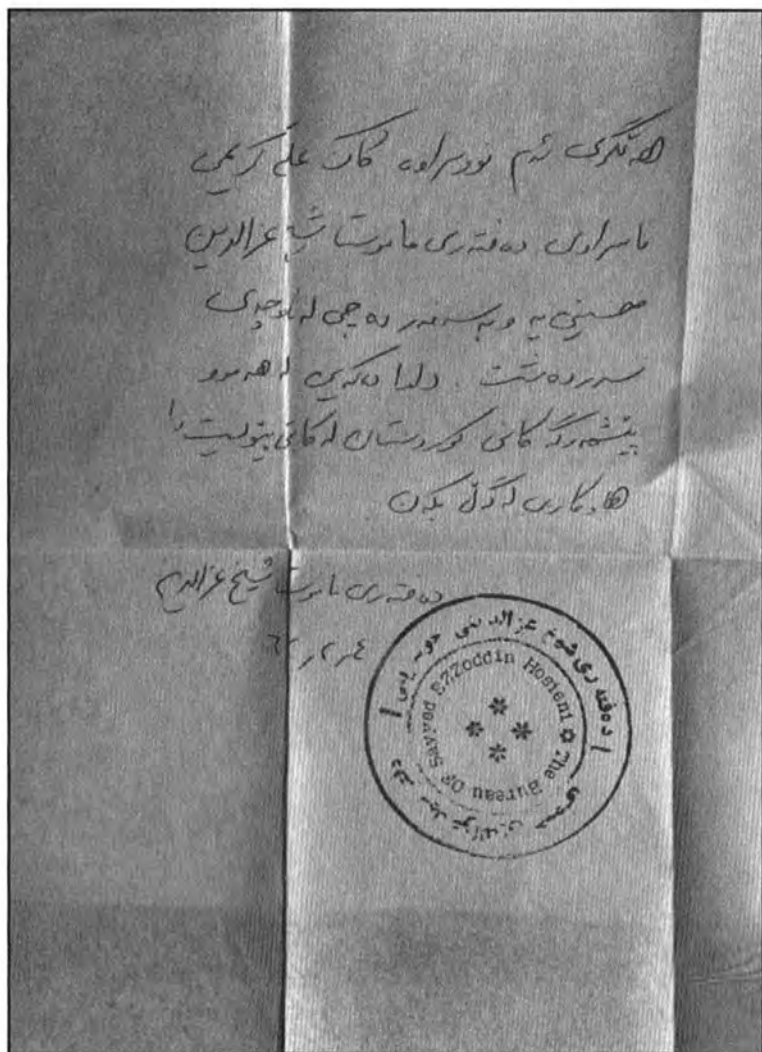 هەڵگری ئەم نووسراوە کاک علی کریمی
مامۆستا شیخ عزالدین دەفتەری
حسینی یە و بە سەفەر دەچی لە ناوچەی
سەردەشت . داوا دەکەین لە هەموو
پێشمەرگەکانی کوردستان لەکاتی پێویست دا
هاوکاری لەگەڵ بکەن
دەفتەری مامۆستا شیخ عزالدین
٦٢ر٢ر٤
دەفتەری شێخ عزالدینی حوسەینی
The Bureau OF Sayyed EZZoddin Hosieni
دفتر سید عزالدین حسینی